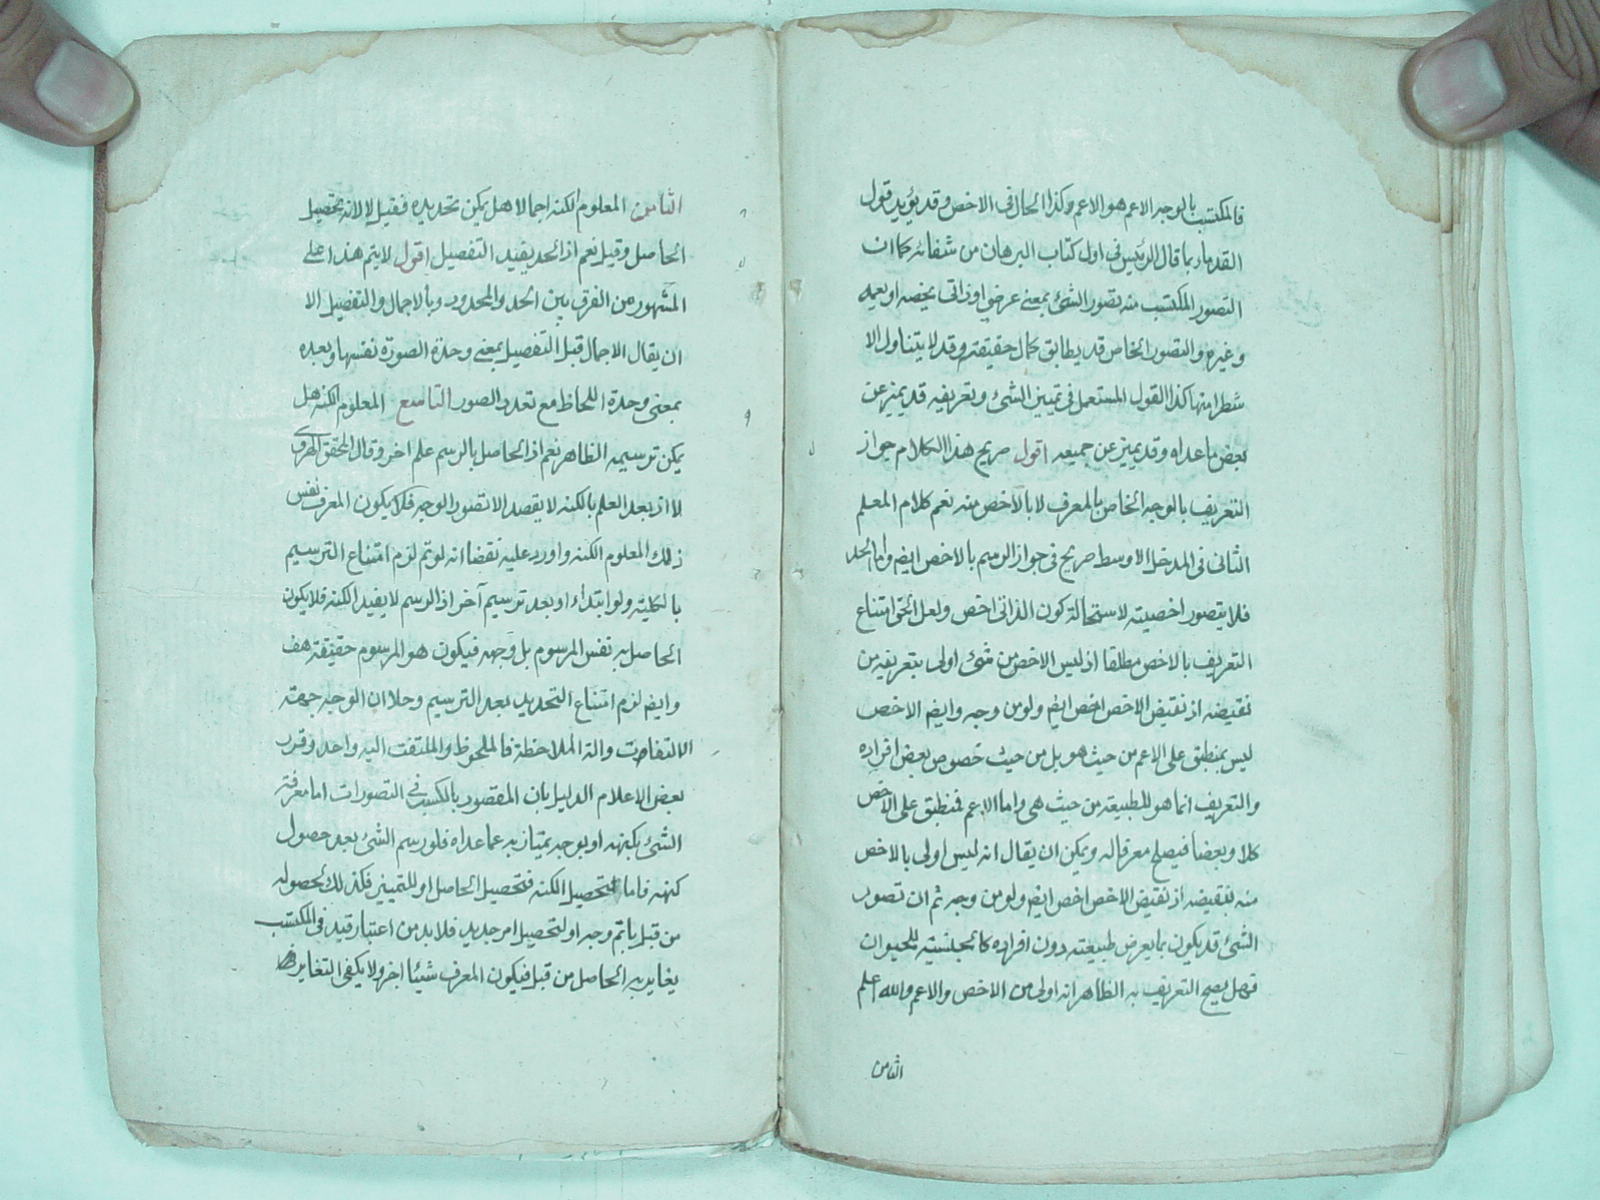 فالمكتسب بالوجه الاعم هو الاعم وكذا الحال فى الاخص وقد يؤيد قول
القدماء بما قال الرئيس فى اول كتاب البرهان من شفائه كما ان
التصور المكتسب منه تصور الشئ بمعنى عرضى او ذاتى يخصه او يعمه
وغيره والتصور الخاص قد يطابق كمال حقيقته وقد لا يتناول الا
شطرا منها كذا القول المستعمل فى تميز الشئ وتعريفه قد يميزه عن
بعض ما عداه وقد يميزه عن جميعه اقول صريح هذا الكلام جواز
التعريف بالوجه الخاص بالمعرف لا بالاخص منه نعم كلام المعلم
الثانى فى المدخل الاوسط صريح فى جواز الرسم بالاخص ايض واما الحد
فلا يتصور اخصيته لاستحالة كون الذاتى اخص ولعل الحق امتناع
التعريف بالاخص مطلقا اذ ليس الاخص من شئ اولى بتعريفه من
نقيضه اذ نقيض الاخص اخص ايض ولو من وجه وايض الاخص
ليس بمنطبق على الاعم من حيث هو بل من حيث خصوص بعض افراده
والتعريف انما هو للطبيعة من حيث هى واما الاعم فمنطبق على الاخص
كلا وبعضا فيصلح معرفا له ويمكن ان يقال انه ليس اولى بالاخص
منه بنقيضه اذ نقيض الاخص اخص ايض ولو من وجه ثم ان تصور
الشئ قد يكون بما يعرض طبيعته دون افراده كالجنسية للحيوان
فهل يصح التعريف به الظاهر انه اولى من الاخص والاعم والله اعلم
الثامن
الثامن المعلوم الكنه اجمالا هل يمكن تحديده فقيل لا لانه تحصيل
الحاصل وقيل نعم اذ الحد يفيد التفصيل اقول لا يتم هذا على
المشهور من الفرق بين الحد والمحدود وبالاجمال والتفصيل الا
ان يقال الاجمال قبل التفصيل بمعنى وحدة الصورة نفسها وبعده
بمعنى وحدة اللحاظ مع تعدد الصور التاسع المعلوم الكنه هل
يمكن ترسيمه الظاهر نعم اذ الحاصل بالرسم علم اخر وقال المحقق الهروى
لا اذ بعد العلم بالكنه لا يقصد الا تصور الوجه فلا يكون المعرف نفس
ذلك المعلوم الكنه واورد عليه نقضا انه لو تم لزم امتناع الترسيم
بالكلية ولو ابتداء او بعد ترسيم آخر اذ الرسم لا يفيد الكنه فلا يكون
الحاصل به نفس المرسوم بل وجهه فيكون هو المرسوم حقيقة هف
وايض لزم امتناع التحديد بعد الترسيم وحلا ان الوجه جهة
الالتفات والة الملاحظة فالملحوظ والملتفت اليه واحد وقرر
بعض الاعلام الدليل بان المقصود بالكسب فى التصورات اما معرفة
الشئ بكنهه او بوجه يمتاز به عما عداه فلو رسم الشئ بعد حصول
كنهه فاما لتحصيل الكنه فتحصيل الحاصل او للتمييز فكذلك لحصوله
من قبل باتم وجه او لتحصيل امر جديد فلا بد من اعتبار قيد فى المكتسب
يغاير به الحاصل من قبل فيكون المعرف شيئا اخر ولا يكفى التغاير